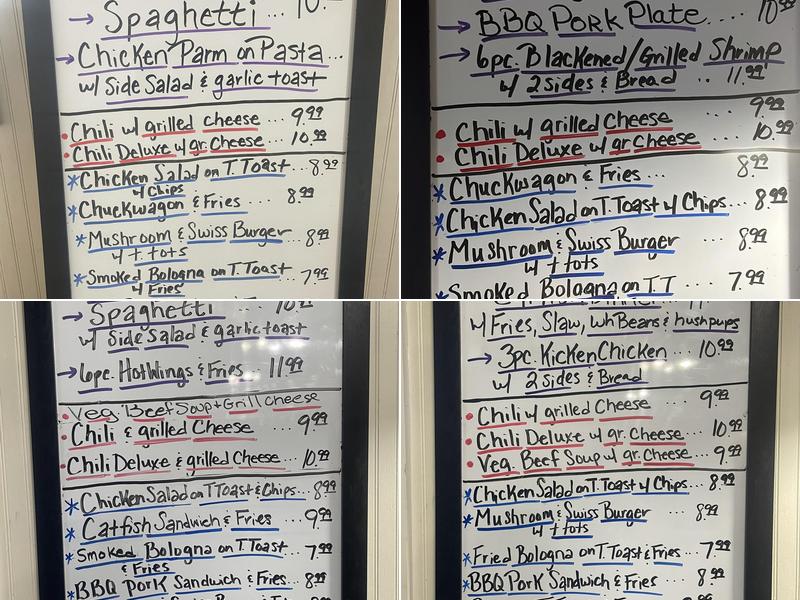 → Spaghetti ... 10.
→ Chicken Parm on Pasta ...
w/ Side Salad & garlic toast
• Chili w/ grilled cheese ... 9.99
• Chili Deluxe w/ gr. Cheese ... 10.99
* Chicken Salad on T. Toast ... 8.99
w/ Chips
* Chuckwagon & Fries ... 8.99
* Mushroom & Swiss Burger ... 8.99
w/ t. tots
* Smoked Bologna on T. Toast ... 7.99
w/ Fries
→ BBQ Pork Plate .... 10.99
→ 6pc. Blackened/Grilled Shrimp
w/ 2 sides & Bread .. 11.99
• Chili w/ grilled Cheese ... 9.99
• Chili Deluxe w/ gr Cheese ... 10.99
* Chuckwagon & Fries ... 8.99
* Chicken Salad on T. Toast w/ Chips... 8.99
* Mushroom & Swiss Burger ... 8.99
w/ t tots
Smoked Bologna on T.T ... 7.99
→ Spaghetti ... 10.99
w/ Side Salad & garlic toast
→ 6pc. HotWings & Fries ... 11.99
• Veg. Beef Soup + Grill Cheese
• Chili & grilled Cheese ... 9.99
• Chili Deluxe & grilled Cheese ... 10.99
* Chicken Salad on T Toast & Chips... 8.99
* Catfish Sandwich & Fries ... 9.99
* Smoked Bologna on T. Toast ... 7.99
& Fries
* BBQ Pork Sandwich & Fries... 8.99
w/ Fries, Slaw, wh Beans & hushpups
→ 3pc. Kicken Chicken ... 10.99
w/ 2 Sides & Bread
• Chili w/ grilled Cheese ... 9.99
• Chili Deluxe w/ gr. Cheese ... 10.99
• Veg. Beef Soup w/ gr. Cheese ... 9.99
* Chicken Salad on T. Toast w/ Chips... 8.99
* Mushroom & Swiss Burger ... 8.99
w/ t tots
* Fried Bologna on T. Toast & Fries ... 7.99
* BBQ Pork Sandwich & Fries ... 8.99